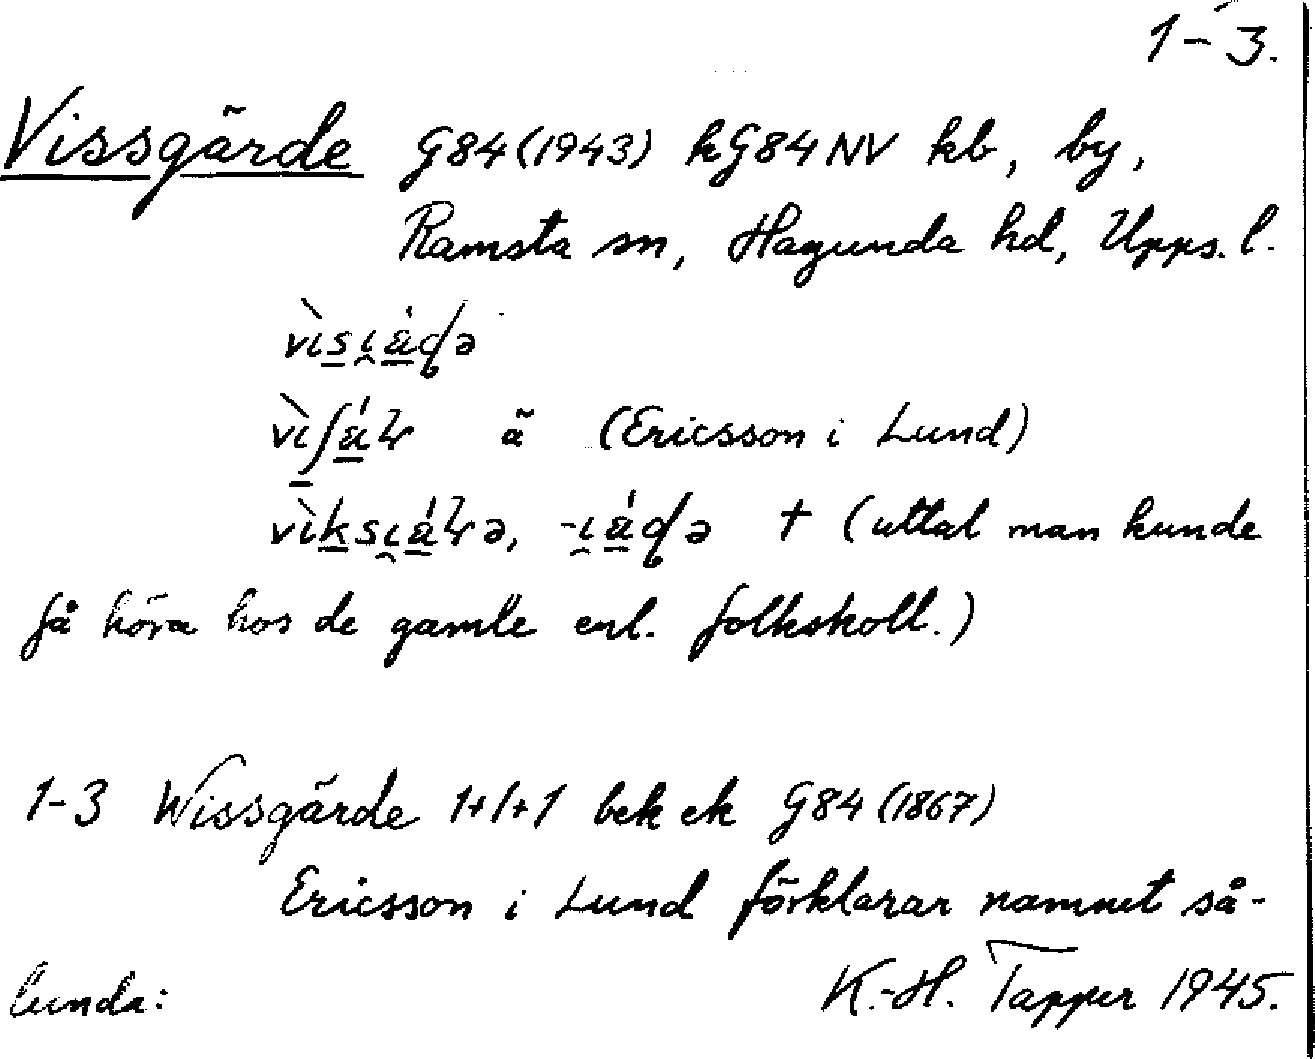 1-3.
Vissgärde G84(1943) kG84NV kb, by,
Ramsta sn, Hagunda hd, Upps. l.
ä (Ericsson i Lund)
† (uttal man kunde
få höra hos de gamle enl. folkskoll.)
1-3 Wissgärde 1+1+1 bek ek G84 (1867)
Ericsson i Lund förklarar namnet så-
lunda: K.-H. Tapper 1945.